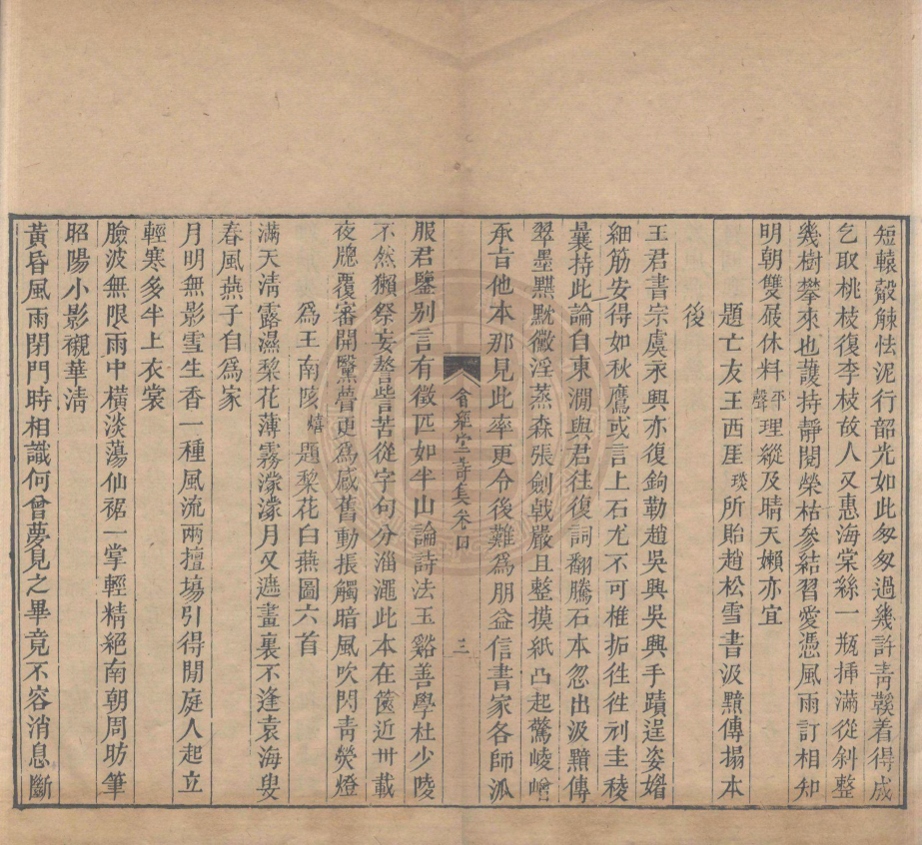 短轅觳觫怯泥行韶光如此匆匆過幾許青鞵着得成
乞取桃枝復李枝故人又惠海棠絲一瓶揷滿從斜整
幾樹攀來也護持靜閱榮枯參結習愛憑風雨訂相知
明朝雙屐休料平聲理縱及晴天嬾亦宜
題亡友王西厓琰所貽趙松雪書汲黯傳搨本
後
王君書宗虞永興亦復鉤勒趙吳興吳興手蹟逞姿媚
細筋安得如秋鷹或言上石尤不可椎拓徃徃刓圭稜
曩持此論自東澗與君往復詞翻騰石本忽出汲黯傳
翠墨黑黕黴淫蒸森張劍戟嚴且整摸紙凸起驚崚嶒
承旨他本那見此率更令後難爲朋益信書家各師派
食硯堂詩集卷四
三
服君鑒別言有徵匹如半山論詩法玉谿善學杜少陵
不然獺祭妄嗸訾苦從字句分淄澠此本在篋近卅載
夜牕覆審開驚瞢更爲感舊動振觸暗風吹閃靑熒燈
爲王南陔題棃花白燕圖六首
滿天淸露濕棃花薄霧濛濛月又遮畫裏不逢袁海叟
春風燕子自爲家
月明無影雪生香一種風流兩擅場引得閒庭人起立
輕寒多半上衣裳
臉波無限雨中橫淡蕩仙裙一掌輕精絕南朝周昉筆
昭陽小影襯華淸
黃昏風雨閉門時相識何曾夢見之畢竟不容消息斷